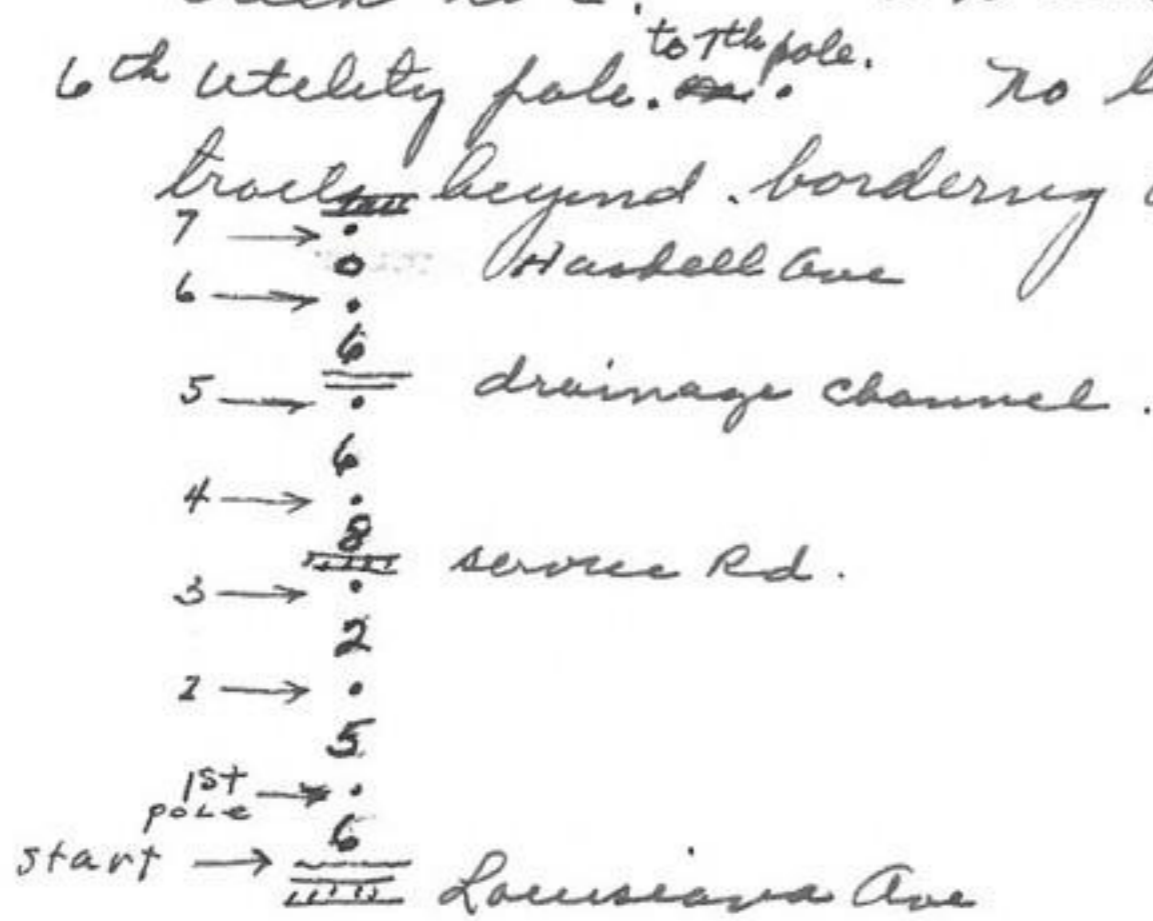 to 7th pole.
6th utility pole. No
trails beyond . bordering
7 →
0 Haskell Ave
6 →
6
5 → drainage channel .
6
4 →
8
service Rd.
3 →
2
2 →
5
1st pole →
6
start → Louisiana Ave